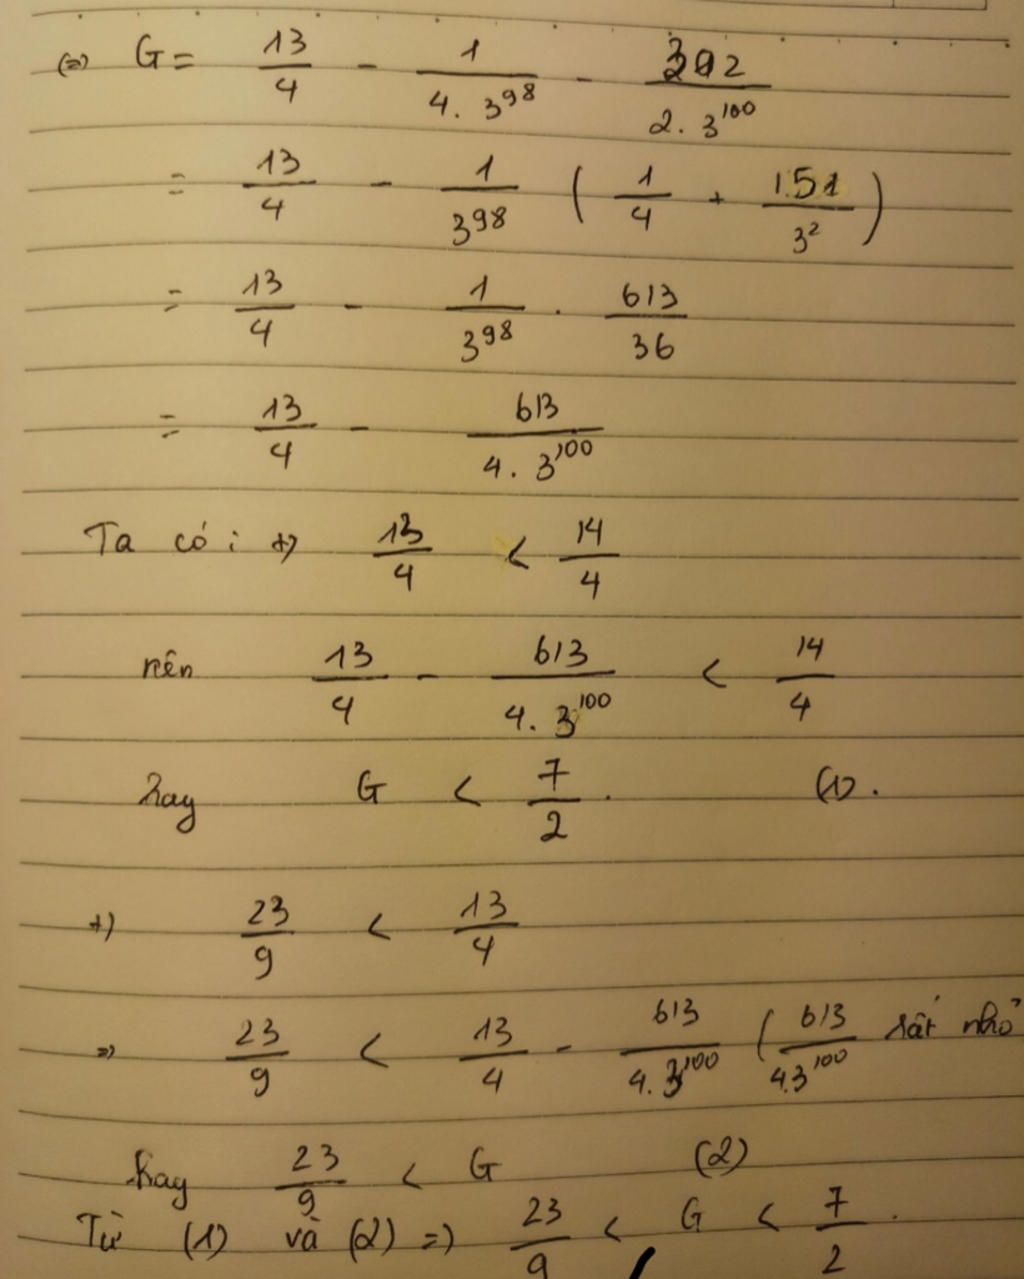 (=) G = 13/4 - 1/(4. 3^98) - 302/(2. 3^100)
= 13/4 - 1/3^98 ( 1/4 + 151/3^2 )
= 13/4 - 1/3^98 . 613/36
= 13/4 - 613/(4. 3^100)
Ta có : +) 13/4 < 14/4
nên 13/4 - 613/(4. 3^100) < 14/4
hay G < 7/2 . (1).
+) 23/9 < 13/4
=) 23/9 < 13/4 - 613/(4. 3^100) ( 613/(4.3^100) rất nhỏ
hay 23/9 < G (2)
Từ (1) và (2) =) 23/9 < G < 7/2 .